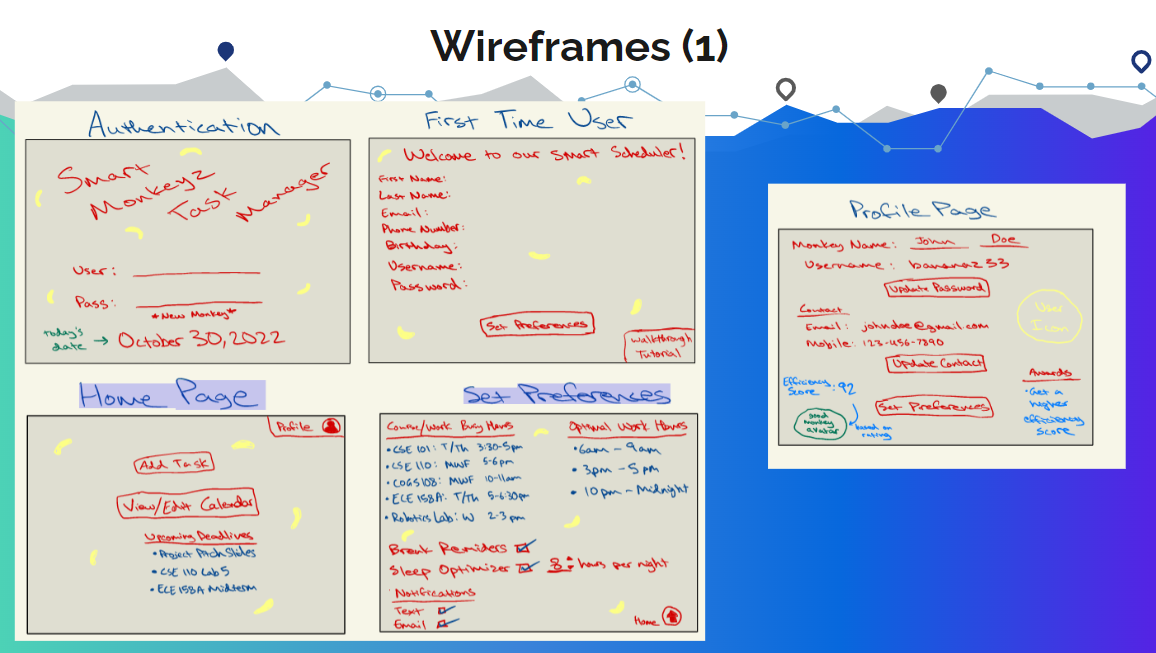 Wireframes (1)
Authentication
Smart
Monkeyz
Task
Manager
User:
Pass:
*New Monkey*
today's
date → October 30, 2022
First Time User
Welcome to our smart Scheduler!
First Name:
Last Name:
Email:
Phone Number:
Birthday:
Username:
Password:
Set Preferences
Walkthrough
Tutorial
Home Page
Profile
Add Task
View/Edit Calendar
Upcoming Deadlines
• Project Pitch Slides
• CSE 110 Lab 5
• ECE 158A Midterm
Set Preferences
Course/Work Busy Hours
• CSE 101: T/Th 3:30-5pm
• CSE 110: MWF 5-6pm
• COGS 108: MWF 10-11am
• ECE 158A: T/Th 5-6:30pm
• Robotics Lab: W 2-3pm
Optimal Work Hours
• 6am - 9am
• 3pm - 5pm
• 10pm - Midnight
Break Reminders
Sleep Optimizer 8 hours per night
Notifications
Text
Email
Home
Profile Page
Monkey Name: John Doe
Username: bananaz33
Update Password
Contact
Email: johndoe@gmail.com
Mobile: 123-456-7890
Update Contact
User
Icon
Efficiency
Score: 92
good
monkey
avatar
based on
rating
Set Preferences
Awards
• Get a
higher
efficiency
score